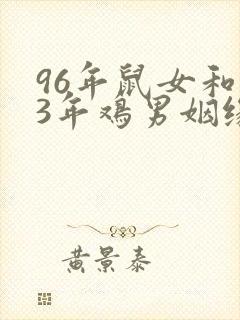 96年鼠女和
3年鸡男姻缘
黄景泰